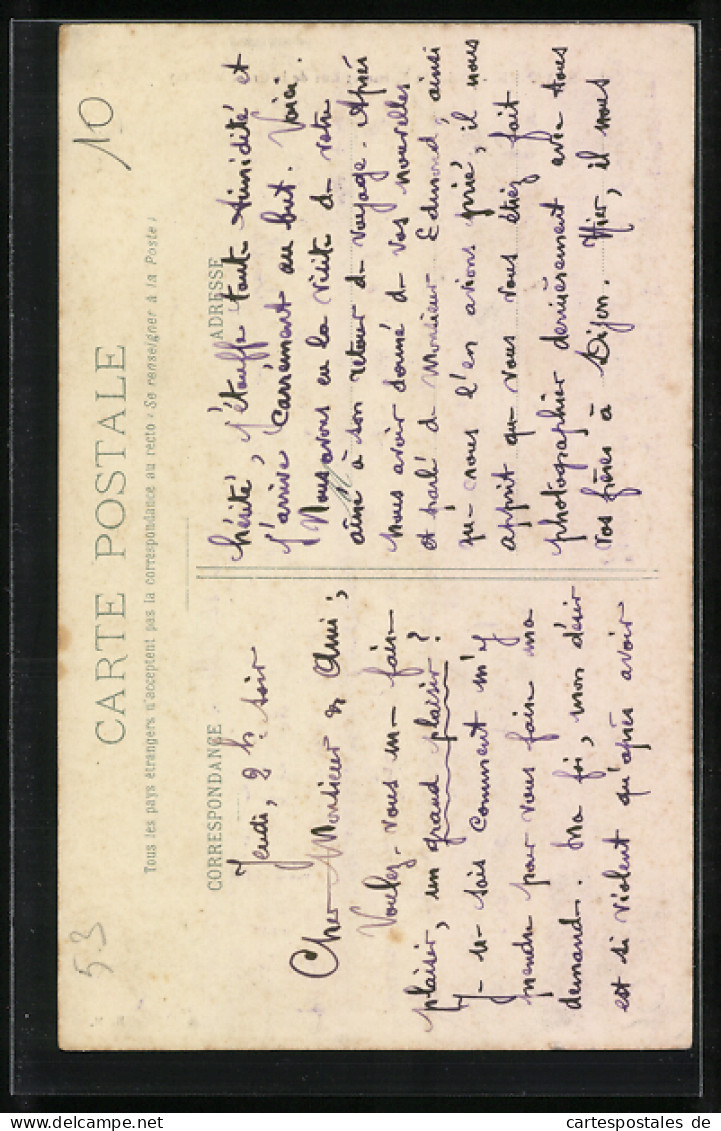 53
10
CARTE POSTALE
Tous les pays étrangers n'acceptent pas la correspondance au recto (Se renseigner à la Poste)
CORRESPONDANCE
ADRESSE
Jeudi, 2 h. soir
Cher Monsieur et Ami ;
Voulez-vous me faire
plaisir, un grand plaisir ?
Je ne sais comment m'y
prendre pour vous faire ma
demande. Ma foi, mon désir
est si violent qu'après avoir
hésité, j'étouffe toute timidité et
j'arrive carrément au but. Voici.
Nous avons eu la visite de votre
aîné à son retour de voyage. Après
nous avoir donné de vos nouvelles
et parlé de Monsieur Edmond, ainsi
que nous l'en avions prié, il nous
apprit que vous vous étiez fait
photographier dernièrement avec tous
vos frères à Dijon. Hier, il nous
cartespostales de